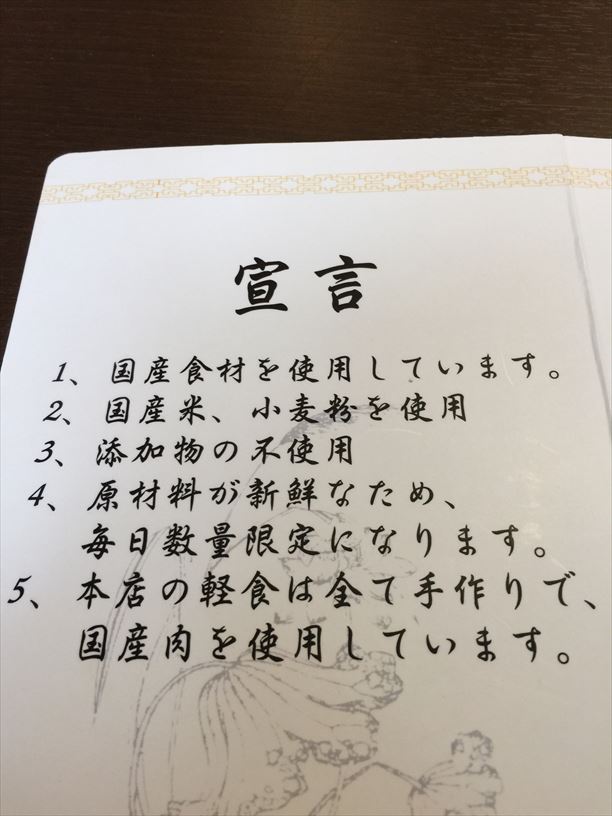 宣言
1、国産食材を使用しています。
2、国産米、小麦粉を使用
3、添加物の不使用
4、原材料が新鮮なため、
毎日数量限定になります。
5、本店の軽食は全て手作りで、
国産肉を使用しています。